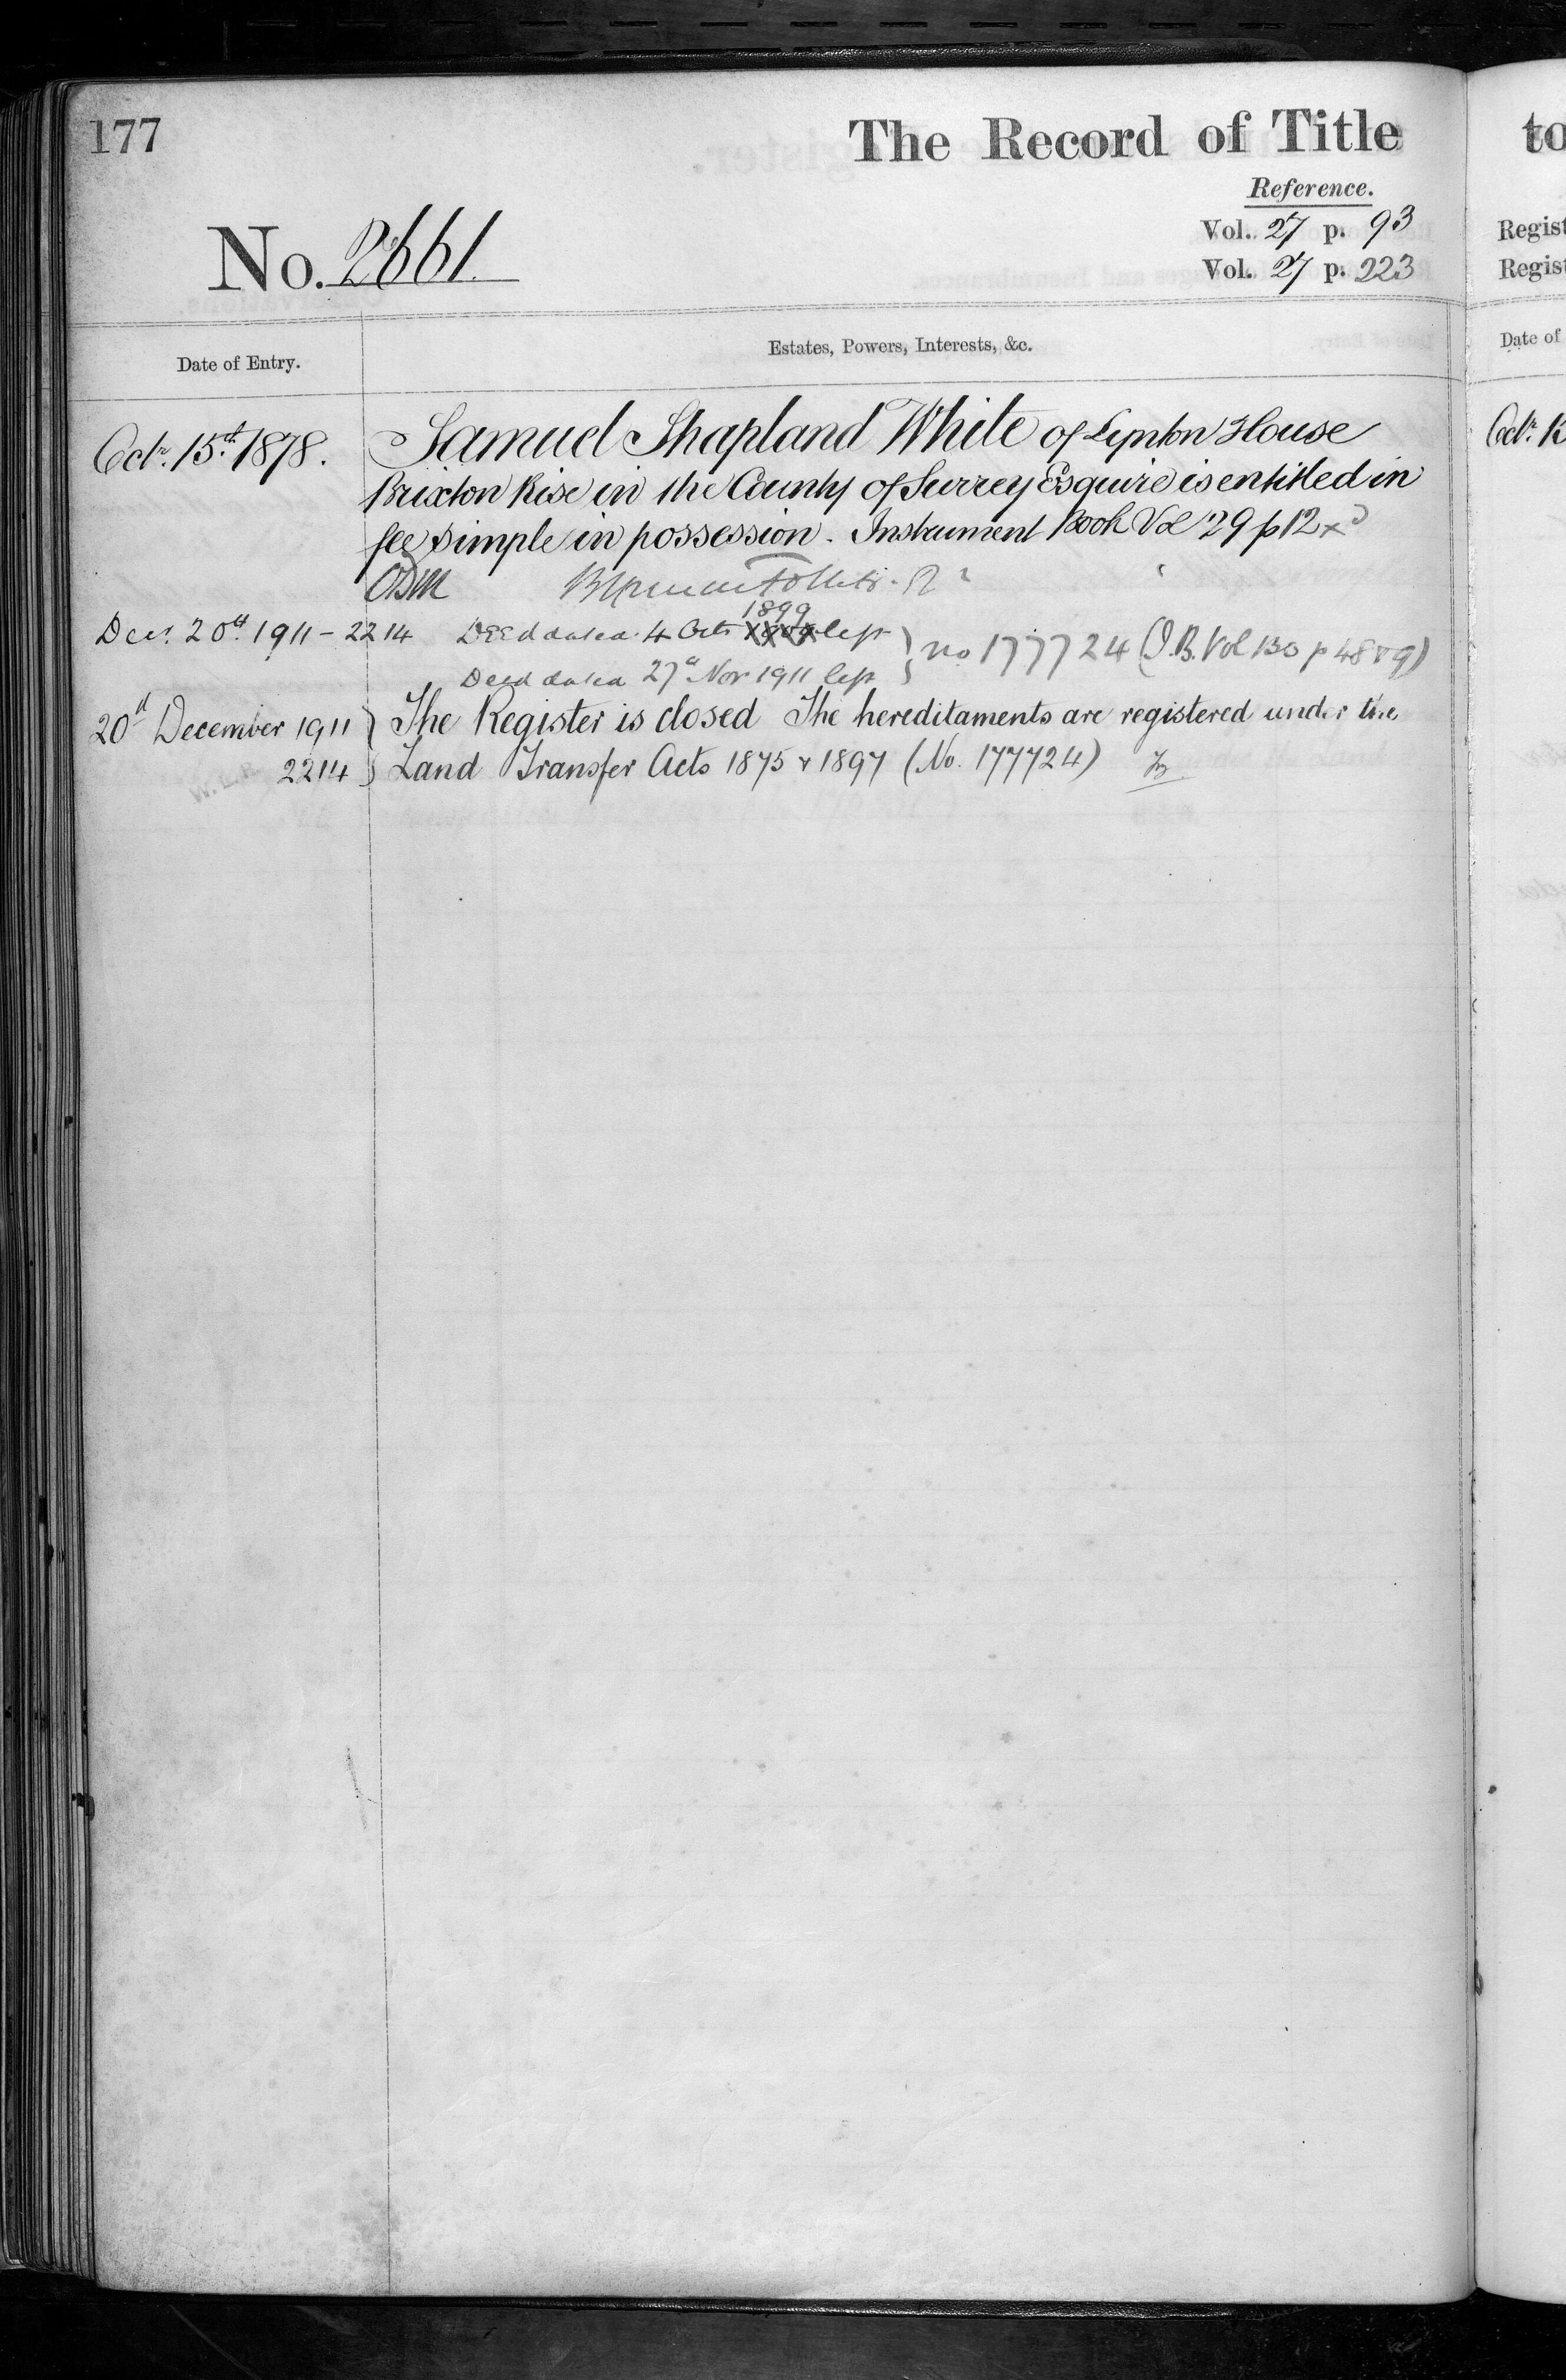 177
The Record of Title
Reference.
No. 2661.
Vol. 27 p. 93
Vol. 27 p. 223
Date of Entry.
Estates, Powers, Interests, &c.
Octr. 15th. 1878.
Samuel Shapland White of Lynton House
Brixton Rise in the County of Surrey Esquire is entitled in
fee simple in possession. Instrument Book Vol 29 p 12
1899
Decr. 20th 1911 - 2214 Deed dated 4 Octr left
no 177724 (I.B. Vol 130 p 48 & 9)
Deed dated 27th Nov 1911 left
20th December 1911 } The Register is closed The hereditaments are registered under the
2214 } Land Transfer Acts 1875 & 1897 (No. 177724)
to
Regist
Regist
Date of
Octr. 15